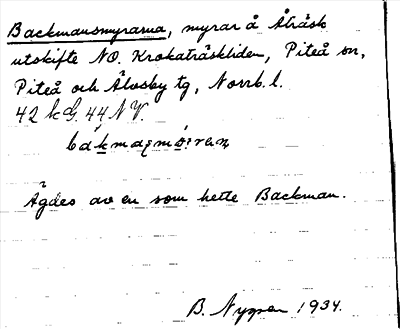 Backmansmyrarna, myrar å Åträsk
utskifte NO. Krokaträskliden, Piteå sn,
Piteå och Älvsby tg, Norrb. l.
42 k G. 44 N V.
Ägdes av en som hette Backman.
B. Nygren 1934.